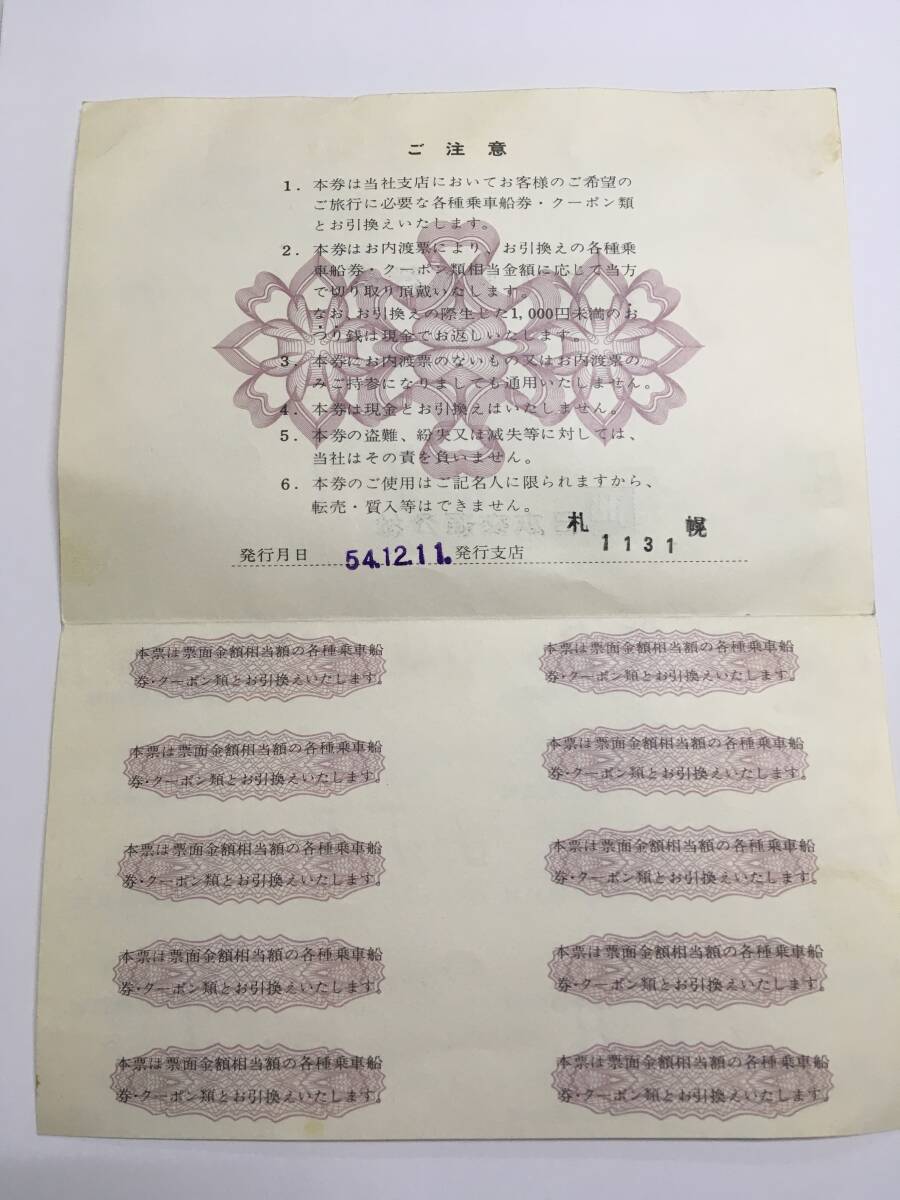 ご注意
1. 本券は当社支店においてお客様のご希望の
ご旅行に必要な各種乗車船券・クーポン類
とお引換えいたします。
2. 本券はお内渡票により、お引換えの各種乗
車船券・クーポン類相当金額に応じて当方
で切り取り頂戴いたします。
なお、お引換えの際生した1,000円未満のお
つり銭は現金でお返しいたします。
3. 本券にお内渡票のないもの又はお内渡票の
みご持参になりましても通用いたしません。
4. 本券は現金とお引換えはいたしません。
5. 本券の盗難、紛失又は滅失等に対しては、
当社はその責を負いません。
6. 本券のご使用はご記名人に限られますから、
転売・質入等はできません。
発行月日 54.12.11. 発行支店 札幌 1131
本票は票面金額相当額の各種乗車船
券・クーポン類とお引換えいたします。
本票は票面金額相当額の各種乗車船
券・クーポン類とお引換えいたします。
本票は票面金額相当額の各種乗車船
券・クーポン類とお引換えいたします。
本票は票面金額相当額の各種乗車船
券・クーポン類とお引換えいたします。
本票は票面金額相当額の各種乗車船
券・クーポン類とお引換えいたします。
本票は票面金額相当額の各種乗車船
券・クーポン類とお引換えいたします。
本票は票面金額相当額の各種乗車船
券・クーポン類とお引換えいたします。
本票は票面金額相当額の各種乗車船
券・クーポン類とお引換えいたします。
本票は票面金額相当額の各種乗車船
券・クーポン類とお引換えいたします。
本票は票面金額相当額の各種乗車船
券・クーポン類とお引換えいたします。